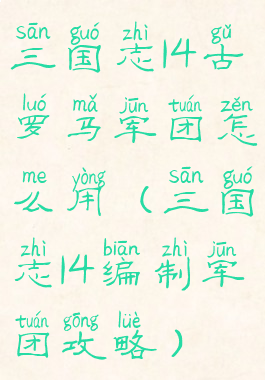 sān guó zhì gǔ
三国志14古
luó mǎ jūn tuán zěn
罗马军团怎
me yòng sān guó
么用(三国
zhì biān zhì jūn
志14编制军
tuán gōng lüè
团攻略)